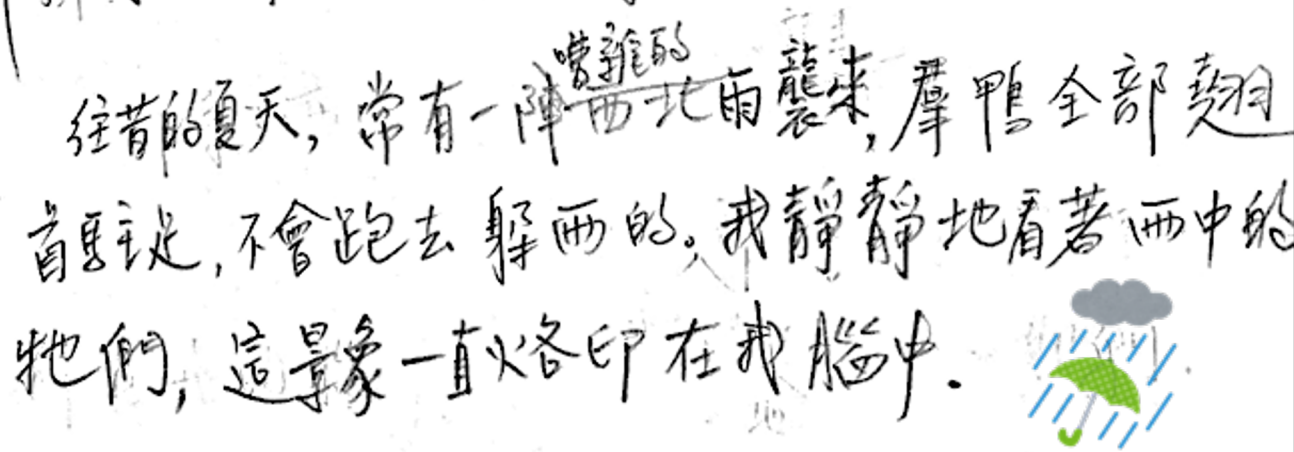 嘈雜的
往昔的夏天,常有一陣西北雨襲來,羣鴨全部翹
首駐足,不會跑去躲雨的。我靜靜地看著雨中的
牠們,這景象一直烙印在我腦中.